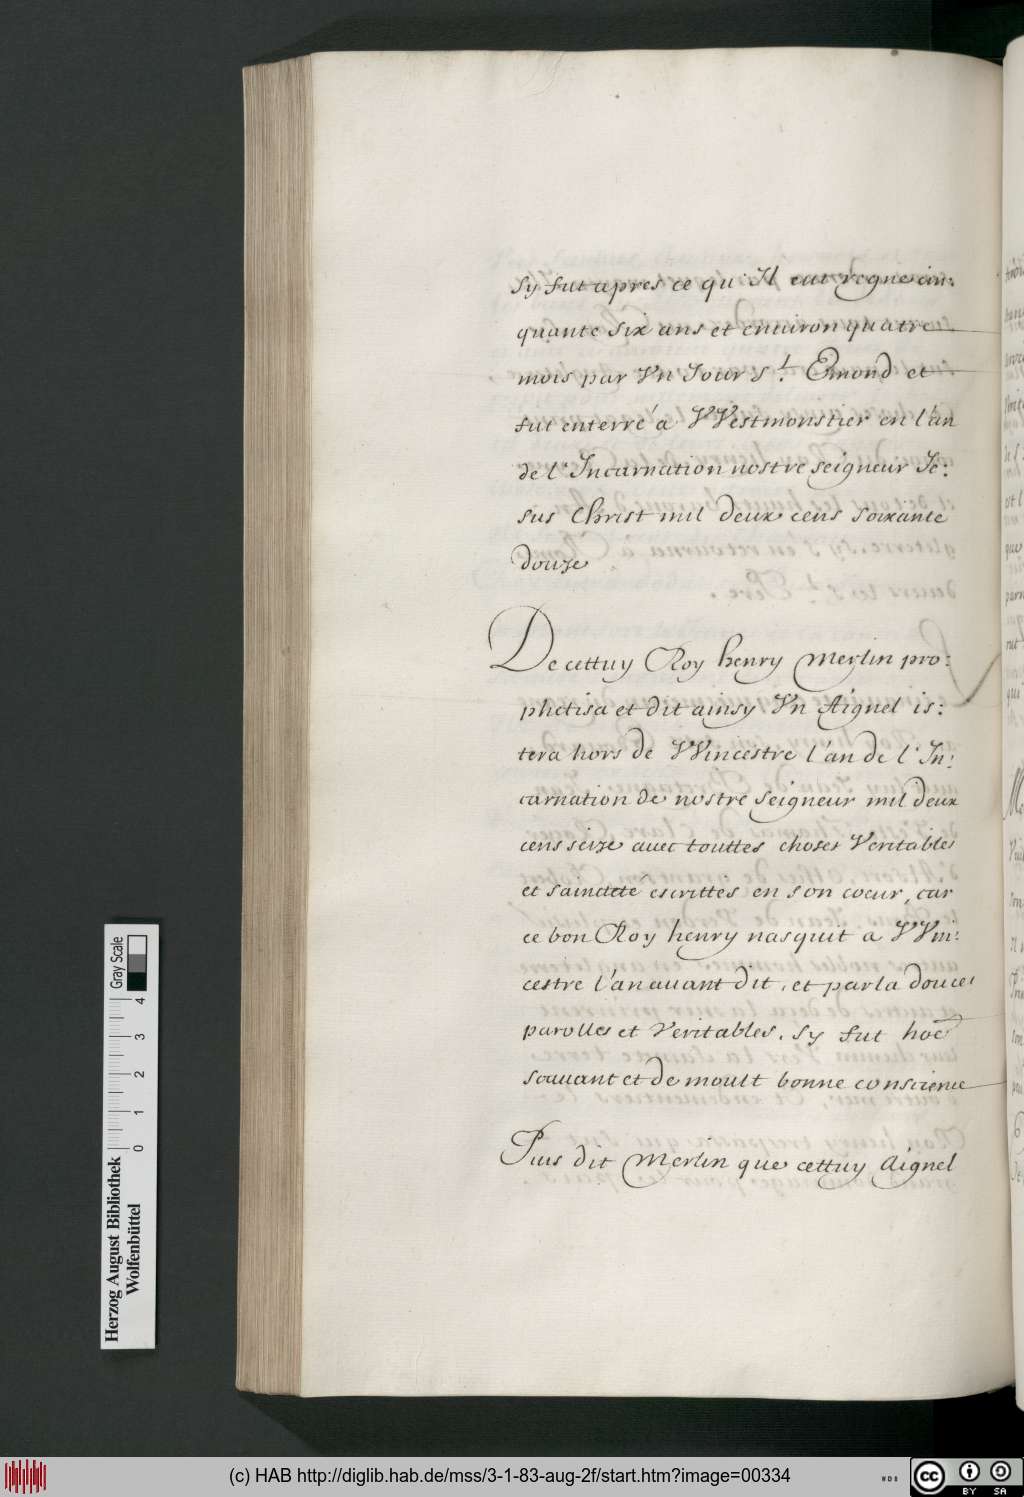 Sy fut apres ce qu'Il eut regne cin:
quante six ans et enuiron quatre
mois par Vn Jour S.t Emond et
fut enterré a VVestmonstier en l'an
de l'Incarnation nostre seigneur Je:
sus Christ mil deux cens soixante
douze
De cettuy Roy henry Merlin pro:
phetisa et dit ainsy Vn Aignel is:
tera hors de VVincestre l'an de l'In:
carnation de nostre seigneur mil deux
cens seize auec touttes choses Veritables
et saincteté escrittes en son coeur, car
ce bon Roy henry nasquit a VVin:
cestre l'an auant dit, et par la douces
parolles et Veritables. sy fut hoe
souuant et de moult bonne conscience
Puis dit Merlin que cettuy Aignel
Gray Scale
4
3
2
1
0
Herzog August Bibliothek
Wolfenbüttel
(c) HAB http://diglib.hab.de/mss/3-1-83-aug-2f/start.htm?image=00334
WDB
cc
BY SA